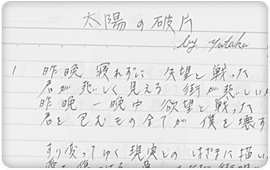 太陽の破片
by yutaka
1 昨晩 寝れずに 失望と戦った
君が悲しく見える 街が悲しい
昨晩 一晩中 欲望と戦った
君を包むもの全てが 僕を壊す
すり減ってゆく 現実との はざまに 描い